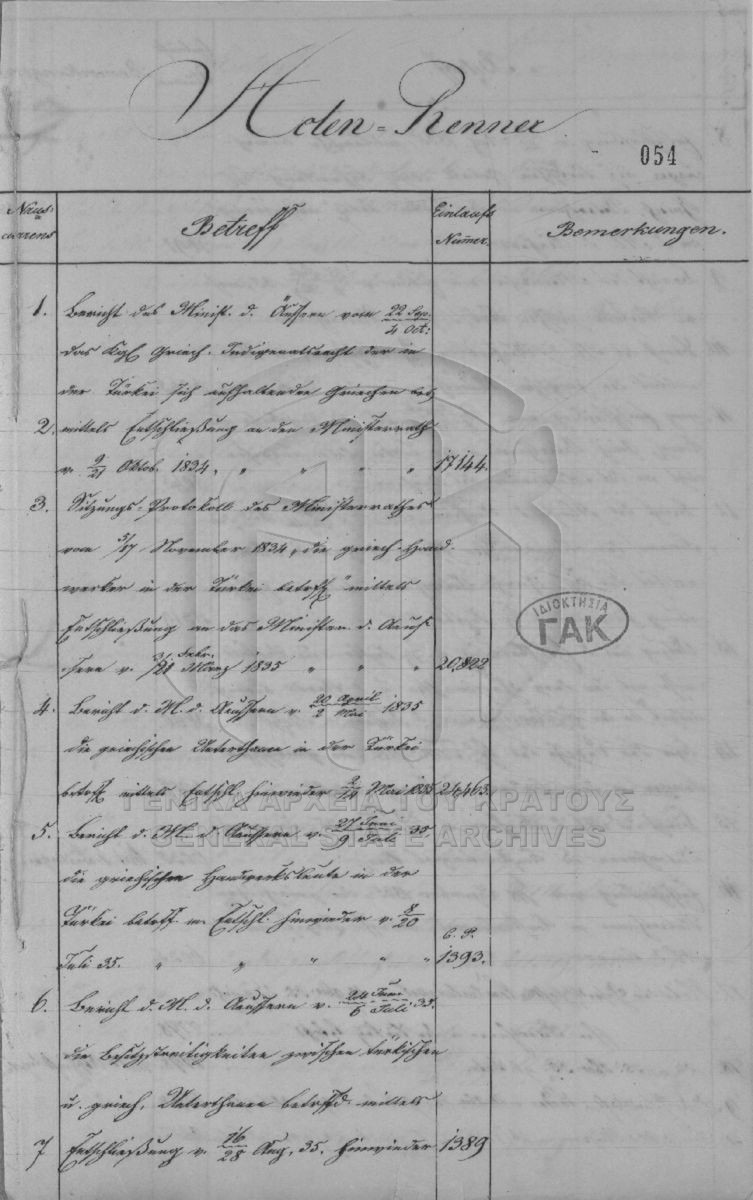 Acten-Renner
054
Nrus currens
Betreff
Einlaufs Numer.
Bemerkungen.
1. Bericht des Minist. d. Äussern vom 22 Sep. / 4 Oct.
das Kgl. Griech. Indigenatsrecht der in
der Türkei sich aufhaltenden Griechen betr.
2. mittels Entschließung an den Ministerrath
v. 9/21 Oktob. 1834. " " " " 17144.
3. Sitzungs-Protokoll des Ministerrathes
vom 5/17 November 1834, "die griech. Hand-
werker in der Türkei betreff." mittels
Entschließung an das Ministerium d. Aeus-
sern v. Febr. / März 1835 " " " 20,822
4. Bericht d. M. d. Aeussern v. 20 April / 2 Mai 1835
die griechischen Unterthanen in der Türkei
betreff. mittels Entschl. hinwieder 2/14 Mai 1835 24,463.
5. Bericht d. M. d. Aeussern v. 27 Juni / 9 Juli 35,
die griechischen Handwerksleute in der
Türkei betreff. m. Entschl. hinwieder v. 8/20
Juli 35. " " " " " 1393.
6. Bericht d. M. d. Aeussern v. 24 Juni / 6 Juli 35.
die Besitzstreitigkeiten zwischen türkischen
u. griech. Unterthanen betreffd. mittels
7 Entschließung v. 16/28 Aug. 35. hinwieder 1389
ΙΔΙΟΚΤΗΣΙΑ
ΓΑΚ
ΓΕΝΙΚΑ ΑΡΧΕΙΑ ΤΟΥ ΚΡΑΤΟΥΣ
GENERAL STATE ARCHIVES